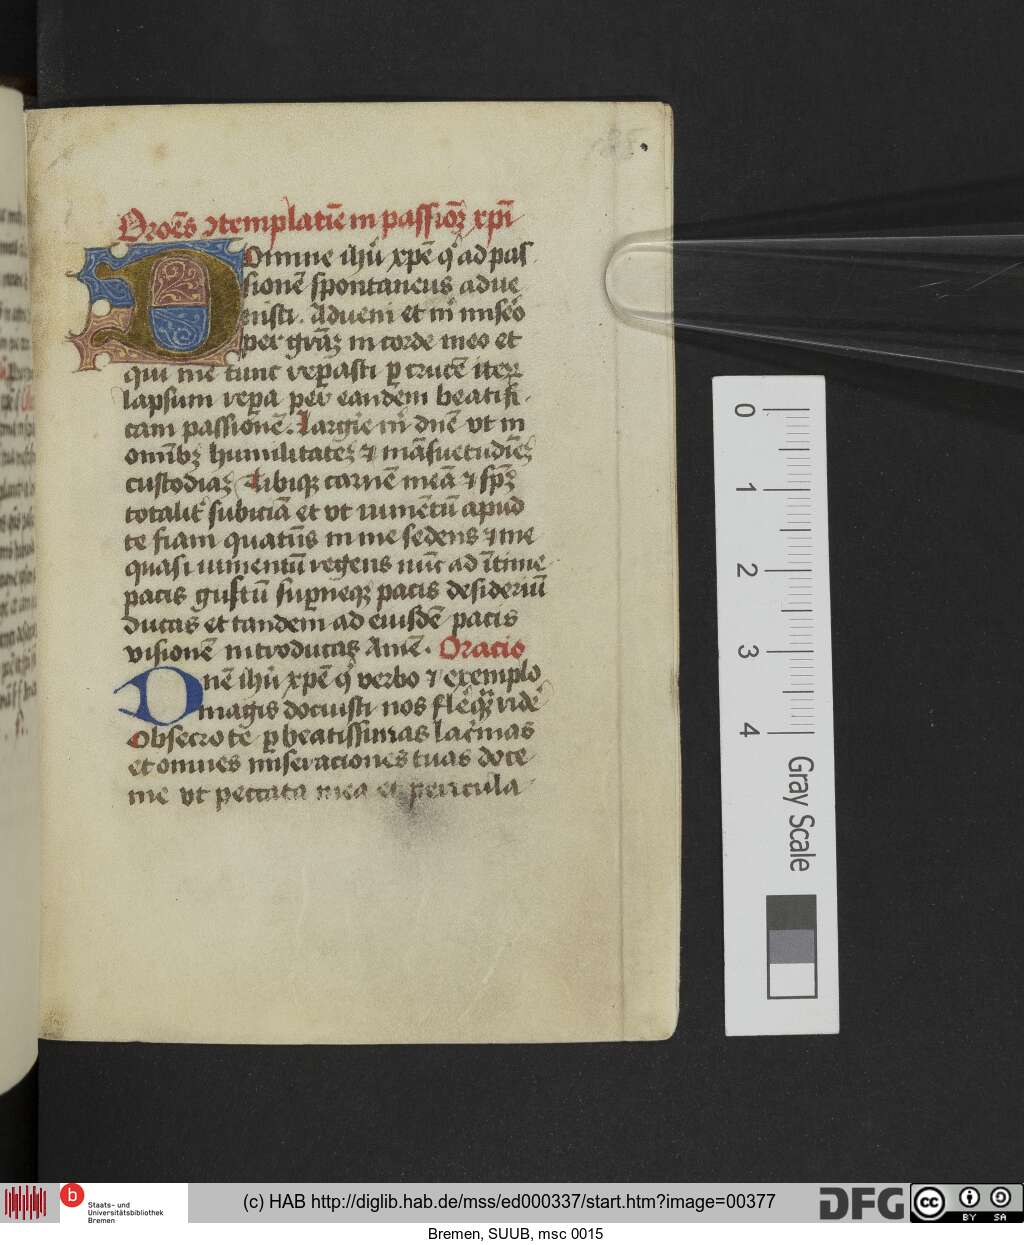 Oroēs ↄtemplatiē in passioꝫ xp̄i
Domine ihū xpē qͥ ad pas
sionē spontaneus adue
nisti. Adueni et mͥ mis̄eo
per grāꝫ in corde meo et
qui me tunc rep̄asti ꝑ crucē iteꝝ
lapsum rep̄a per eandem beatifi
cam passionē. Largire mͥ dn̄e vt in
omībꝫ humilitatēꝫ ⁊ māsuetudīēꝫ
custodiaꝫ Tibiqꝫ carnē meā ⁊ sp̄ꝫ
totalit͛ subiciā et vt iumētū apud
te fiam quatin̄s in me sedens ⁊ me
quasi iumentū regens nūc ad ītime
pacis gustū sup̄neqꝫ pacis desideriū
ducas et tandem ad eiusdē pacis
visionē introducas Amē. Oracio
Dn̄e ihū xpē qͥ verbo ⁊ exemplo
magis docuisti nos flē qͣꝫ ridē
Obsecro te ꝑ beatissimas lac̄mas
et omnes miseraciones tuas doce
me vt peccata mea et pericula
0
1
2
3
4
Gray Scale
b Staats- und
Universitätsbibliothek
Bremen
(c) HAB http://diglib.hab.de/mss/ed000337/start.htm?image=00377
DFG
cc BY SA
Bremen, SUUB, msc 0015